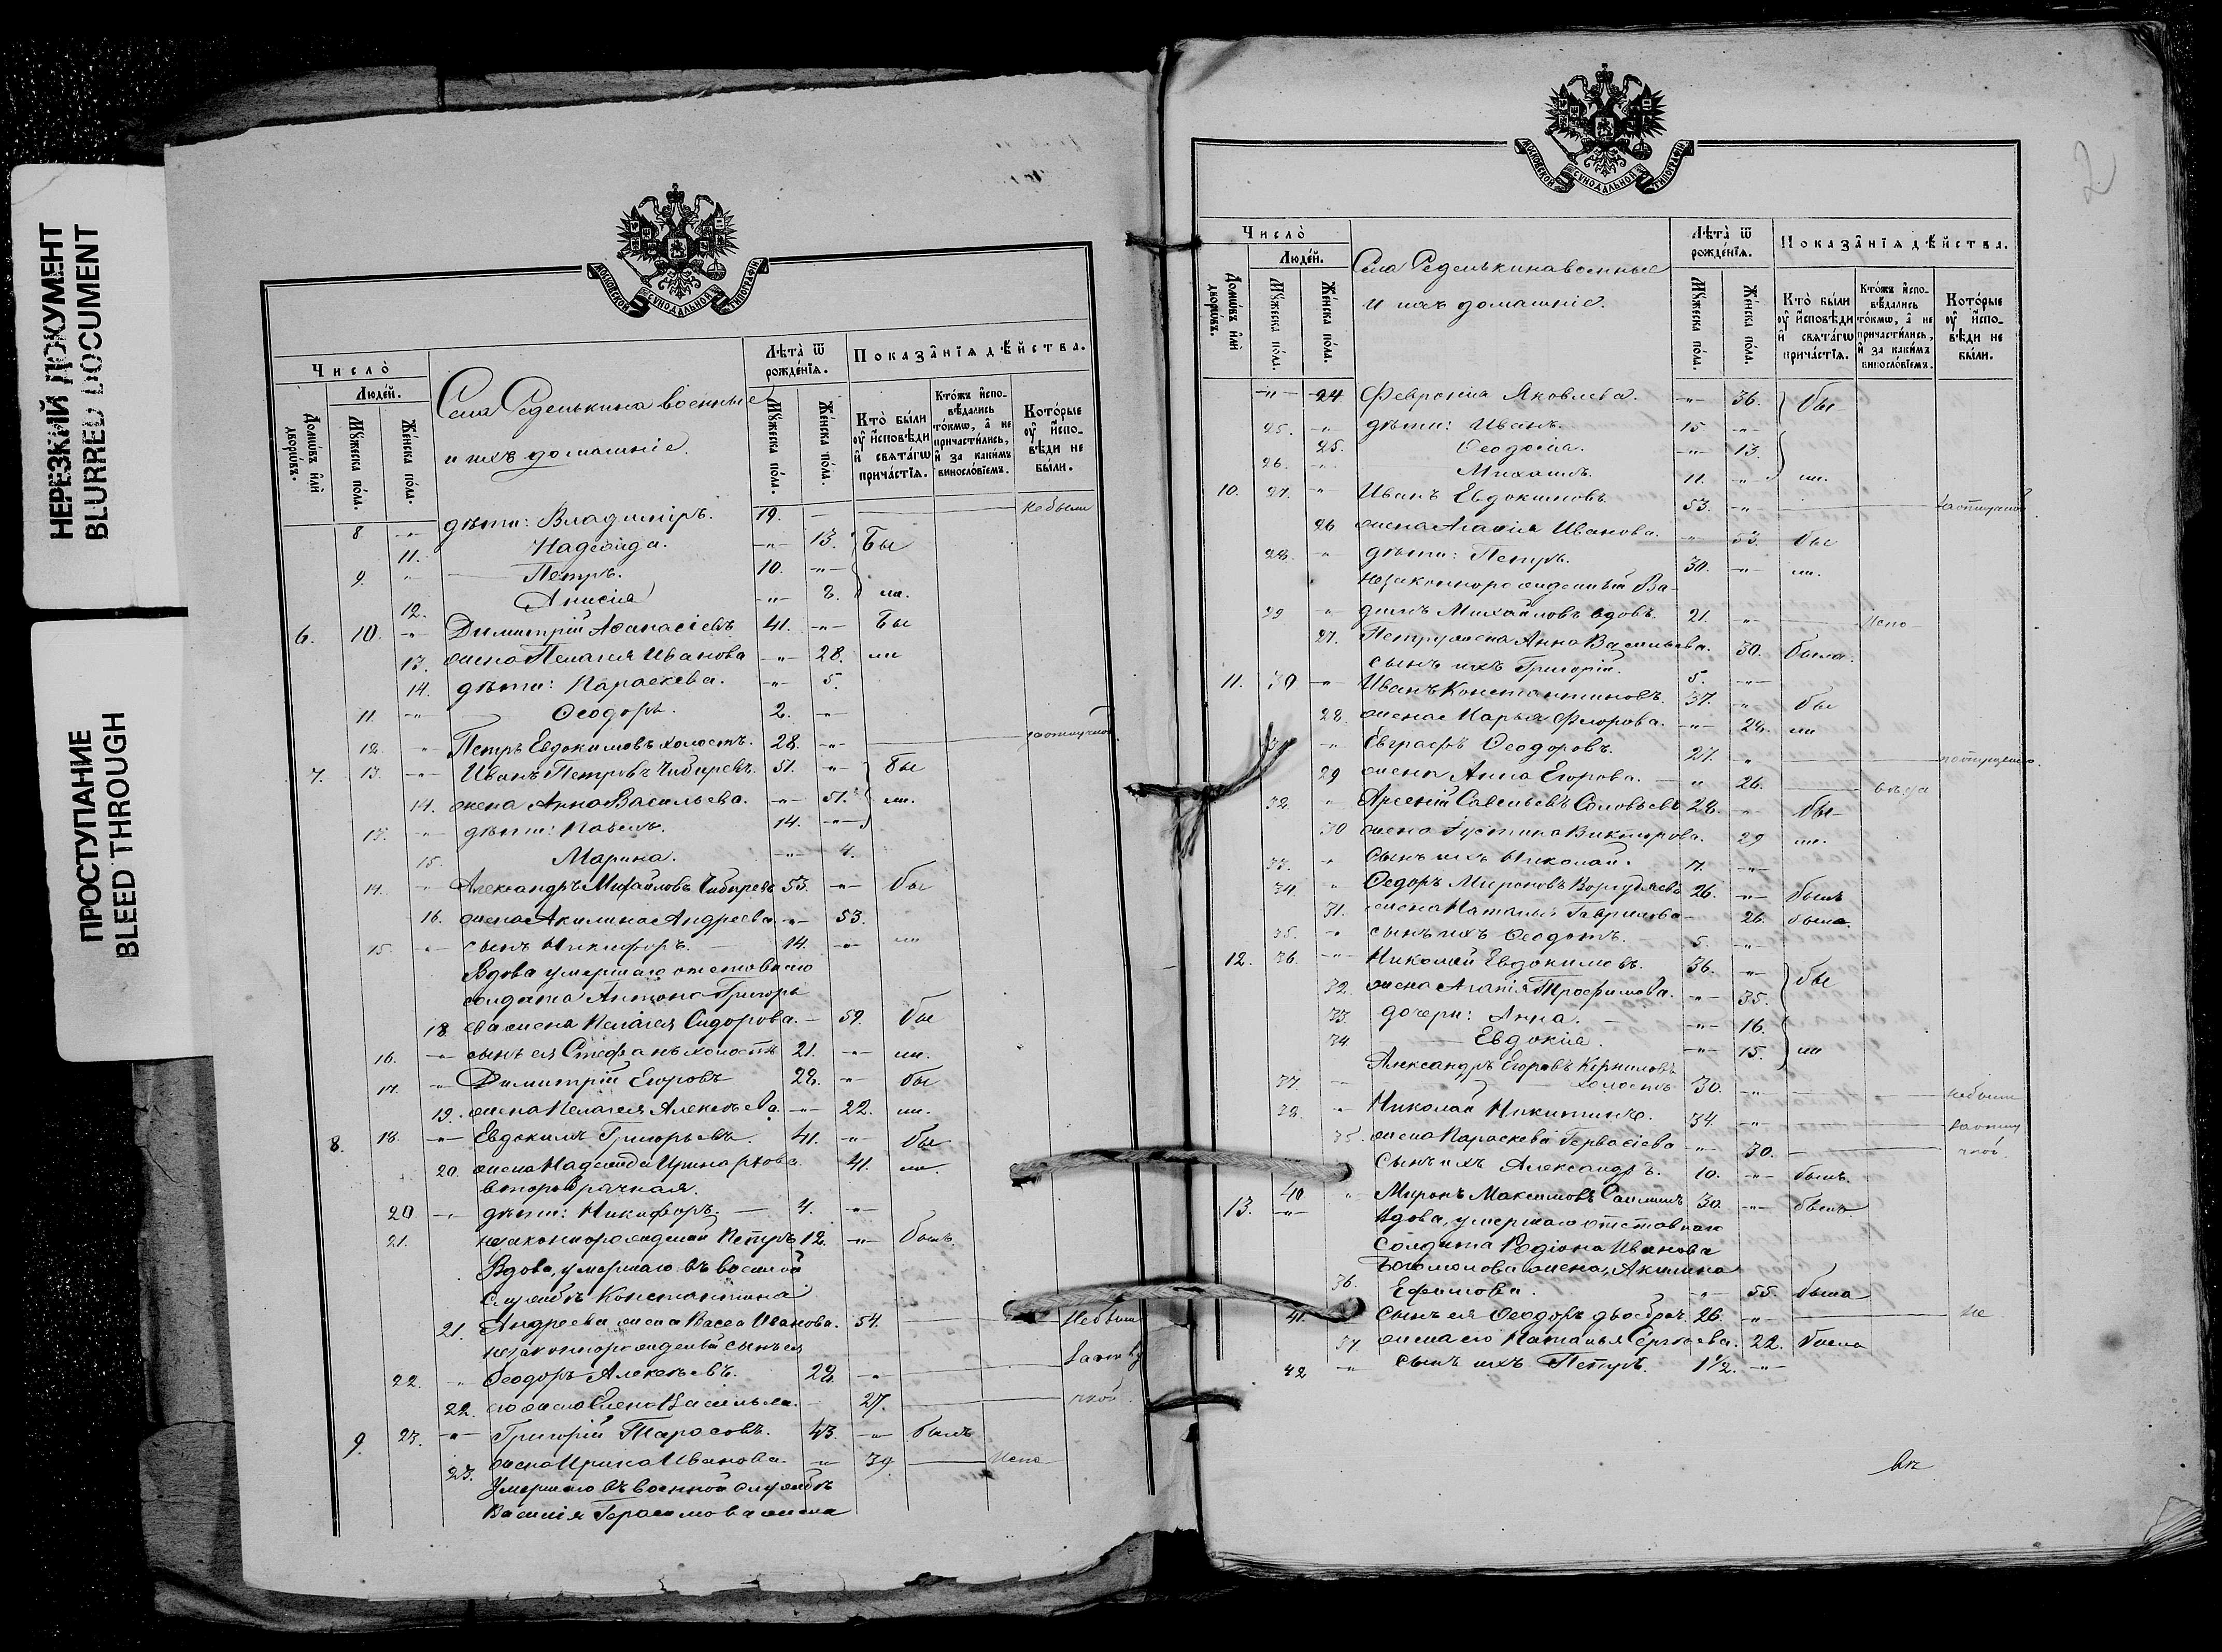 НЕРЕЗКИЙ ДОКУМЕНТ
BLURRED DOCUMENT
ПРОСТУПАНИЕ
BLEED THROUGH
МОСКОВСКОЙ СѴНОДАЛЬНОЙ ТИПОГРАФІИ
Число̀
Людей.
Домѡвъ и҆лѝ дворѡвъ.
Мꙋжеска по́ла.
Же́нска по́ла.
Села Седенькина военные
и ихъ домашніе.
Лѣта̀ ѿ рожде́нїѧ.
Мꙋжеска по́ла.
Же́нска по́ла.
Показа̂нїѧ дѣ́йства.
Кто̀ бы́ли оу҆ и҆сповѣди и҆ свѧта́гѡ прича́стїѧ.
Кто́жъ и҆спо-вѣ́дались то́кмѡ, а҆ не причасти́лись, и҆ за каки́мъ винословїемъ.
Кото́рые оу҆ и҆спо-вѣди не бы́ли.
8 -"- дѣти: Владиміръ. 19. - небыли
11. Надежда. -"- 13. Бы
9. " Петръ. 10. -"-
12. Анисія -"- 8. ли.
6. 10. -"- Димитрій Аѳанасіевъ 41. -"- Бы
13. жена Пелагея Иванова -"- 28. ли
14. дѣти: Параскева. -"- 5.
11. -"- Ѳеодоръ. 2. -"-
12. " Петръ Евдокимовъ холостъ. 28. -"-
7. 13. -"- Иванъ Петровъ Чибиревъ. 51. -"- бы
14. жена Анна Васильева. -"- 51. ли.
13. " дѣти: Павелъ. 14. -"-
15. Марина. -"- 4.
14. " Александръ Михайловъ Чибиревъ 53. -"- бы
16. жена Акилина Андреева. -"- 53.
15. -"- сынъ Никифоръ. 14. -"- ли
Вдова умершаго отставнаго
солдата Антона Григорь
18. ева жена Пелагея Сидорова. - 59. бы
16. -"- сынъ ея Стефанъ холостъ 21. -"- ли.
17. -"- Димитрій Егоровъ 28. -"- бы
19. жена Пелагея Алексѣева. -"- 22. ли.
8. 18. -"- Евдокимъ Григорьевъ. 41. -"- бы
20. жена Надежда Иринархова 41. ли.
второбрачная.
20 -"- дѣти: Никифоръ. 4. -"-
21. незаконнорожденный Петръ 12. -"- былъ
Вдова, умершаго въ военной
службѣ Константина
21. Андреева жена Васса Иванова. 54. Небыли
незаконнорожденный сынъ ея
22. -"- Ѳеодоръ Алексѣевъ. 28. -"-
22. его жена Елена Васильева. 27.
9. 23. -"- Григорій Тарасовъ. 43. -"- былъ
23. жена Ирина Иванова. -"- 39. Испо
Умершаго въ военной службѣ
Василія Герасимова жена
2
МОСКОВСКОЙ СѴНОДАЛЬНОЙ ТИПОГРАФІИ
Число̀
Людей.
Домѡвъ и҆лѝ дворѡвъ.
Мꙋжеска по́ла.
Же́нска по́ла.
Села Седенькина военные
и ихъ домашніе.
Лѣта̀ ѿ рожде́нїѧ.
Мꙋжеска по́ла.
Же́нска по́ла.
Показа̂нїѧ дѣ́йства.
Кто̀ бы́ли оу҆ и҆сповѣди и҆ свѧта́гѡ прича́стїѧ.
Кто́жъ и҆спо-вѣ́дались то́кмѡ, а҆ не причасти́лись, и҆ за каки́мъ винословїемъ.
Кото́рые оу҆ и҆спо-вѣди не бы́ли.
-"- 24 Февронія Яковлева. -"- 36. бы
25. -"- дѣти: Иванъ. 15 -"-
25. Ѳеодосія. -"- 13.
26. -"- Михаилъ. 11. -"- ли.
10. 27. -"- Иванъ Евдокимовъ 53. -"-
26 жена Агафія Иванова. -"- 53. бы
28. -"- дѣти: Петръ. 30. -"- ли.
незаконнорожденный Ва-
29 " димъ Михайловъ вдовъ. 21. -"- Испо
27. Петру жена Анна Васильева. 30. была.
сынъ ихъ Григорій. 5. -"-
11. 30 -"- Иванъ Константиновъ. 37. -"- бы
28. жена Марья Федорова. -"- 28. ли
" Евграфъ Ѳеодоровъ. 27. -"-
29 жена Анна Егорова. " 26.
32. " Арсеній Савельевъ Соловьевъ 28. -"- бы
30 жена Іустина Викторова. 29 ли.
33. " Сынъ ихъ Николай. -"-
34. " Ѳедоръ Мироновъ 26. -"- былъ
31. жена Наталья Гаврилова 26. была.
35. -"- сынъ ихъ Ѳеодотъ. 5. -"-
12. 36. -"- Николай Евдокимовъ. 36. -"- бы
32. жена Агапія Трофимова. -"- 35.
33. дочери: Анна. -"- 16.
34 Евдокія. -"- 15. ли
Александръ Егоровъ
37. -"- холостъ 30. -"- небыли
38. " Николай Никитинъ. 34. -"-
35. жена Параскева Гервасіева -"- 30.
Сынъ ихъ Александръ. 10. -"- былъ.
13. 40 " Миронъ Максимовъ 30. -"- былъ
Вдова, умершаго отставнаго
Солдата Родіона Иванова
Богомолова жена, Акилина
36. Ефимова. -"- 55. была
41. сынъ ея Ѳеодоръ двоебрач. 26. -"- Не
37 жена его Наталья Сергѣева. 22. была
42 -"- сынъ ихъ Петръ. 1½. -"-